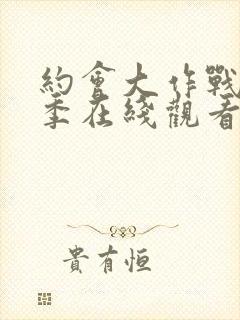 約會大作戰
季在綫觀看
貴有恒